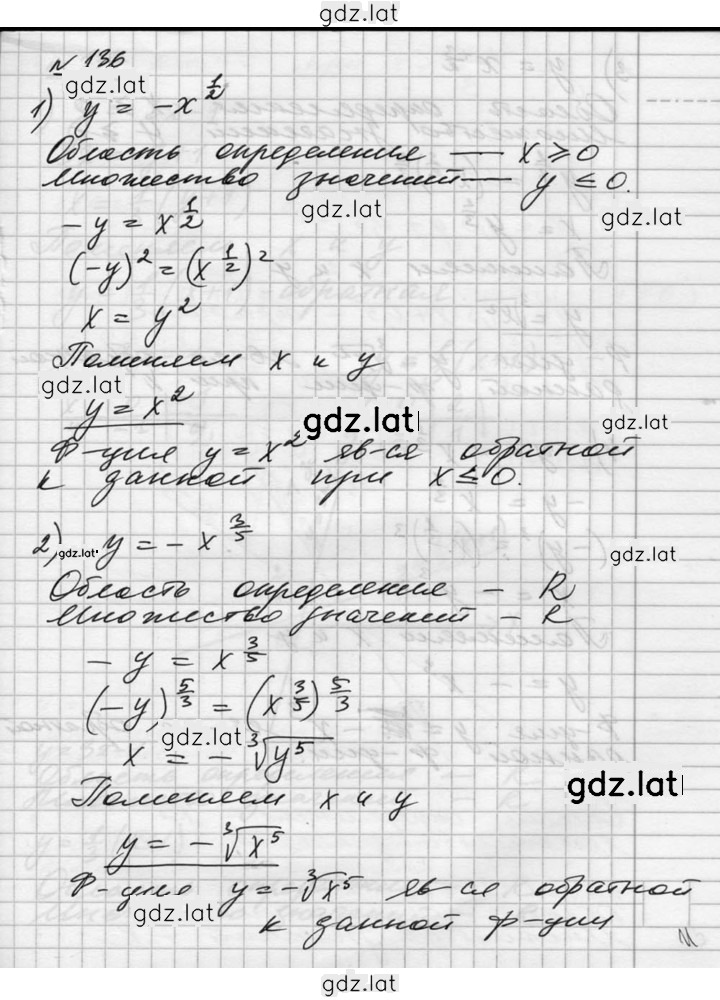 gdz.lat
№ 136
gdz.lat
1) y = -x^(1/2)
Область определения — x ≥ 0
Множество значений — y ≤ 0.
gdz.lat gdz.lat
-y = x^(1/2)
(-y)^2 = (x^(1/2))^2
x = y^2
Поменяем x и y
gdz.lat
y = x^2
gdz.lat gdz.lat
Ф-ция y = x^2 яв-ся обратной
к данной при x ≤ 0.
2) gdz.lat y = -x^(3/5)
gdz.lat
Область определения - R
Множество значений - R
-y = x^(3/5)
(-y)^(5/3) = (x^(3/5))^(5/3)
gdz.lat gdz.lat
x = -∛y^5
gdz.lat
Поменяем x и y
y = -∛x^5
Ф-ция y = -∛x^5 яв-ся обратной
gdz.lat gdz.lat
к данной ф-ции
gdz.lat